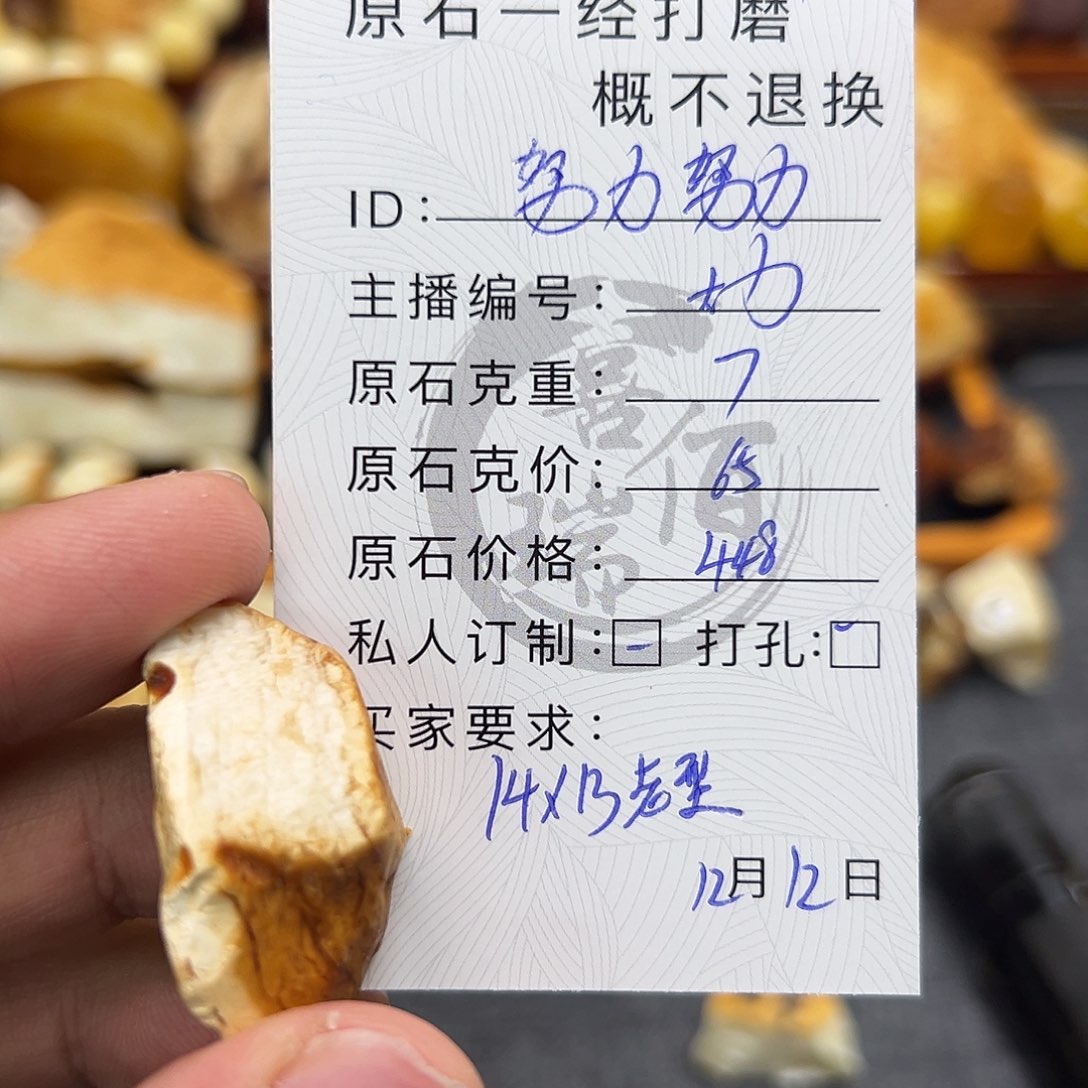 原石一经打磨
概不退换
ID: 努力努力
主播编号:
原石克重: 7
原石克价: 65
原石价格: 448
私人订制:□ 打孔:□
买家要求:
14x13老型
12月12日
喜佰瑞